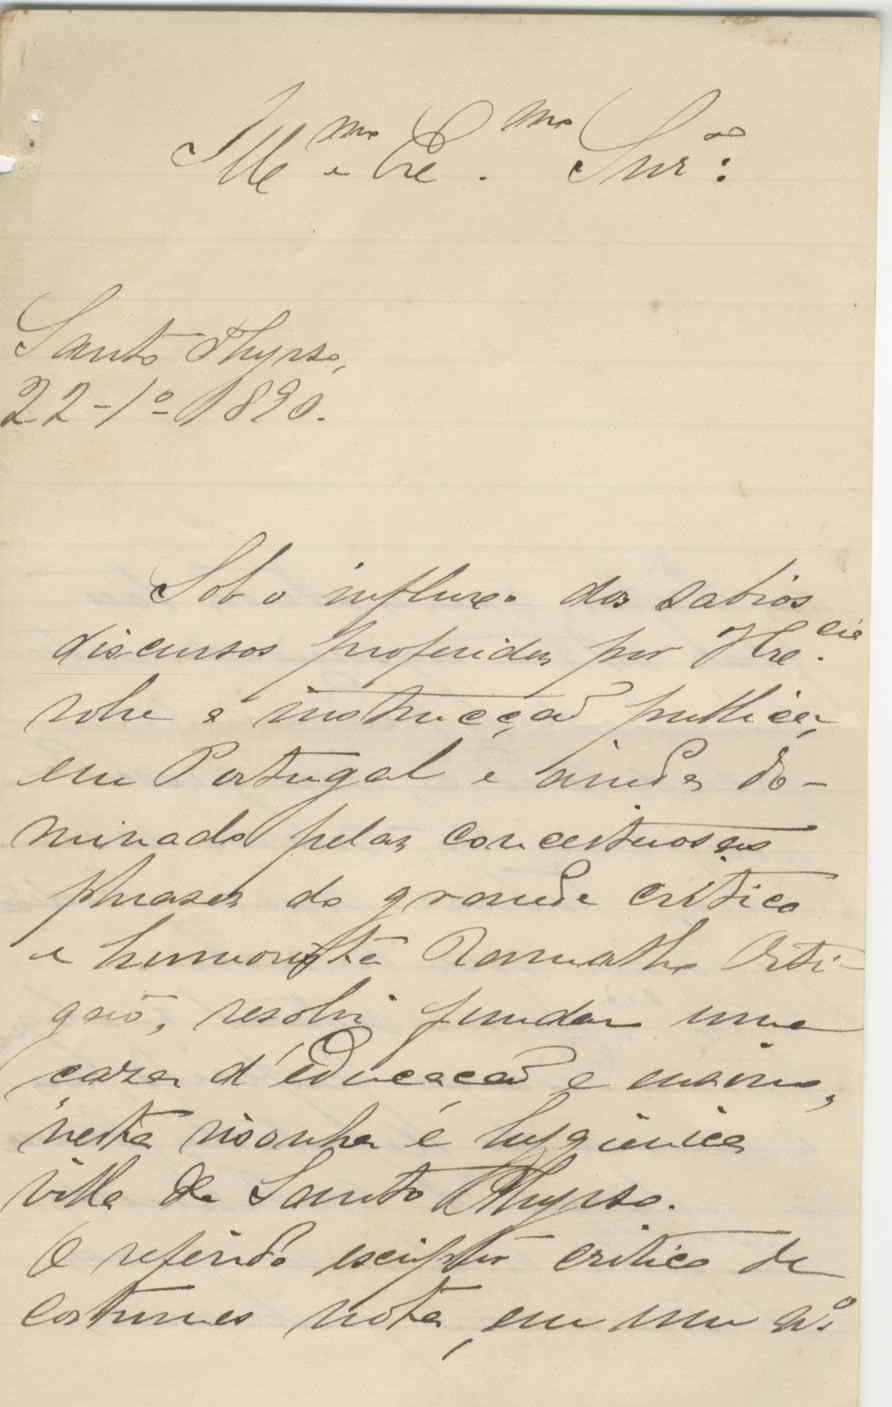 Illmo e Exmo. Snr.:
Santo Thyrso,
22-1º-1890.
Sob o influxo dos sabios
discursos proferidos por V. Excia.
sobre a instrucção publica,
em Portugal e ainda do-
minado pelas conceituosas
phrases do grande critico
e humorista Ramalho Orti-
gaõ, resolvi fundar uma
caza d'educação e ensino,
nesta risonha e hygienica
villa de Santo Thyrso.
O referido escriptor critico de
costumes nota, em um n.º